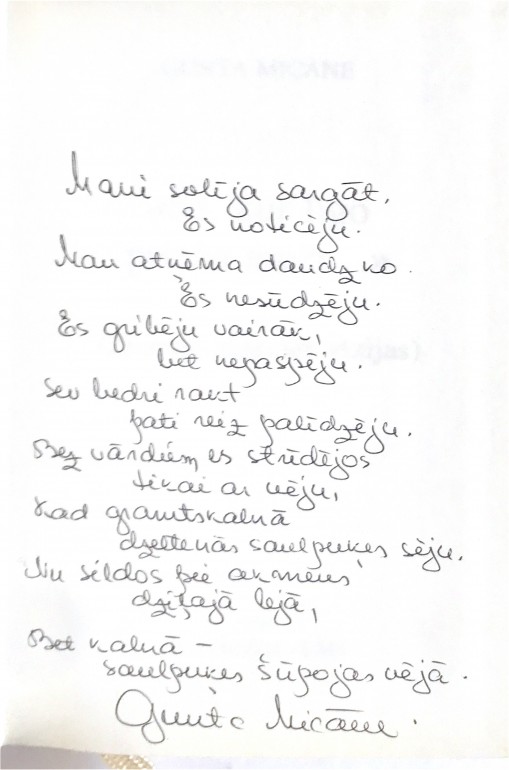 Mani solīja sargāt,
Es noticēju.
Man atņēma daudz ko.
Es nesūdzēju.
Es gribēju vairāk,
bet nepaspēju.
Sev bedri rakt
pati reiz palīdzēju.
Bez vārdiem es strīdējos
tikai ar vēju,
Kad grantskalnā
dzeltenās saulpuķes sēju.
Nu sildos pie akmens
dziļajā lejā,
Bet kalnā –
saulpuķes šūpojas vējā.
Gunta Micāne.